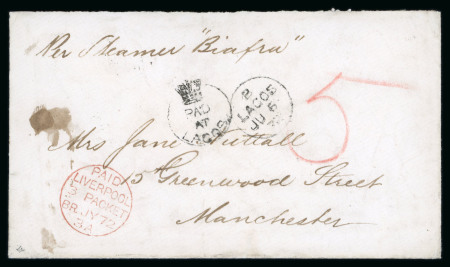 Per Steamer "Biafra"
PAID
AT
LAGOS
LAGOS
JU 5
5
Mrs Jane Nuttall
15 Greenwood Street
Manchester
PAID
LIVERPOOL
BR. PACKET
JY 72
3A